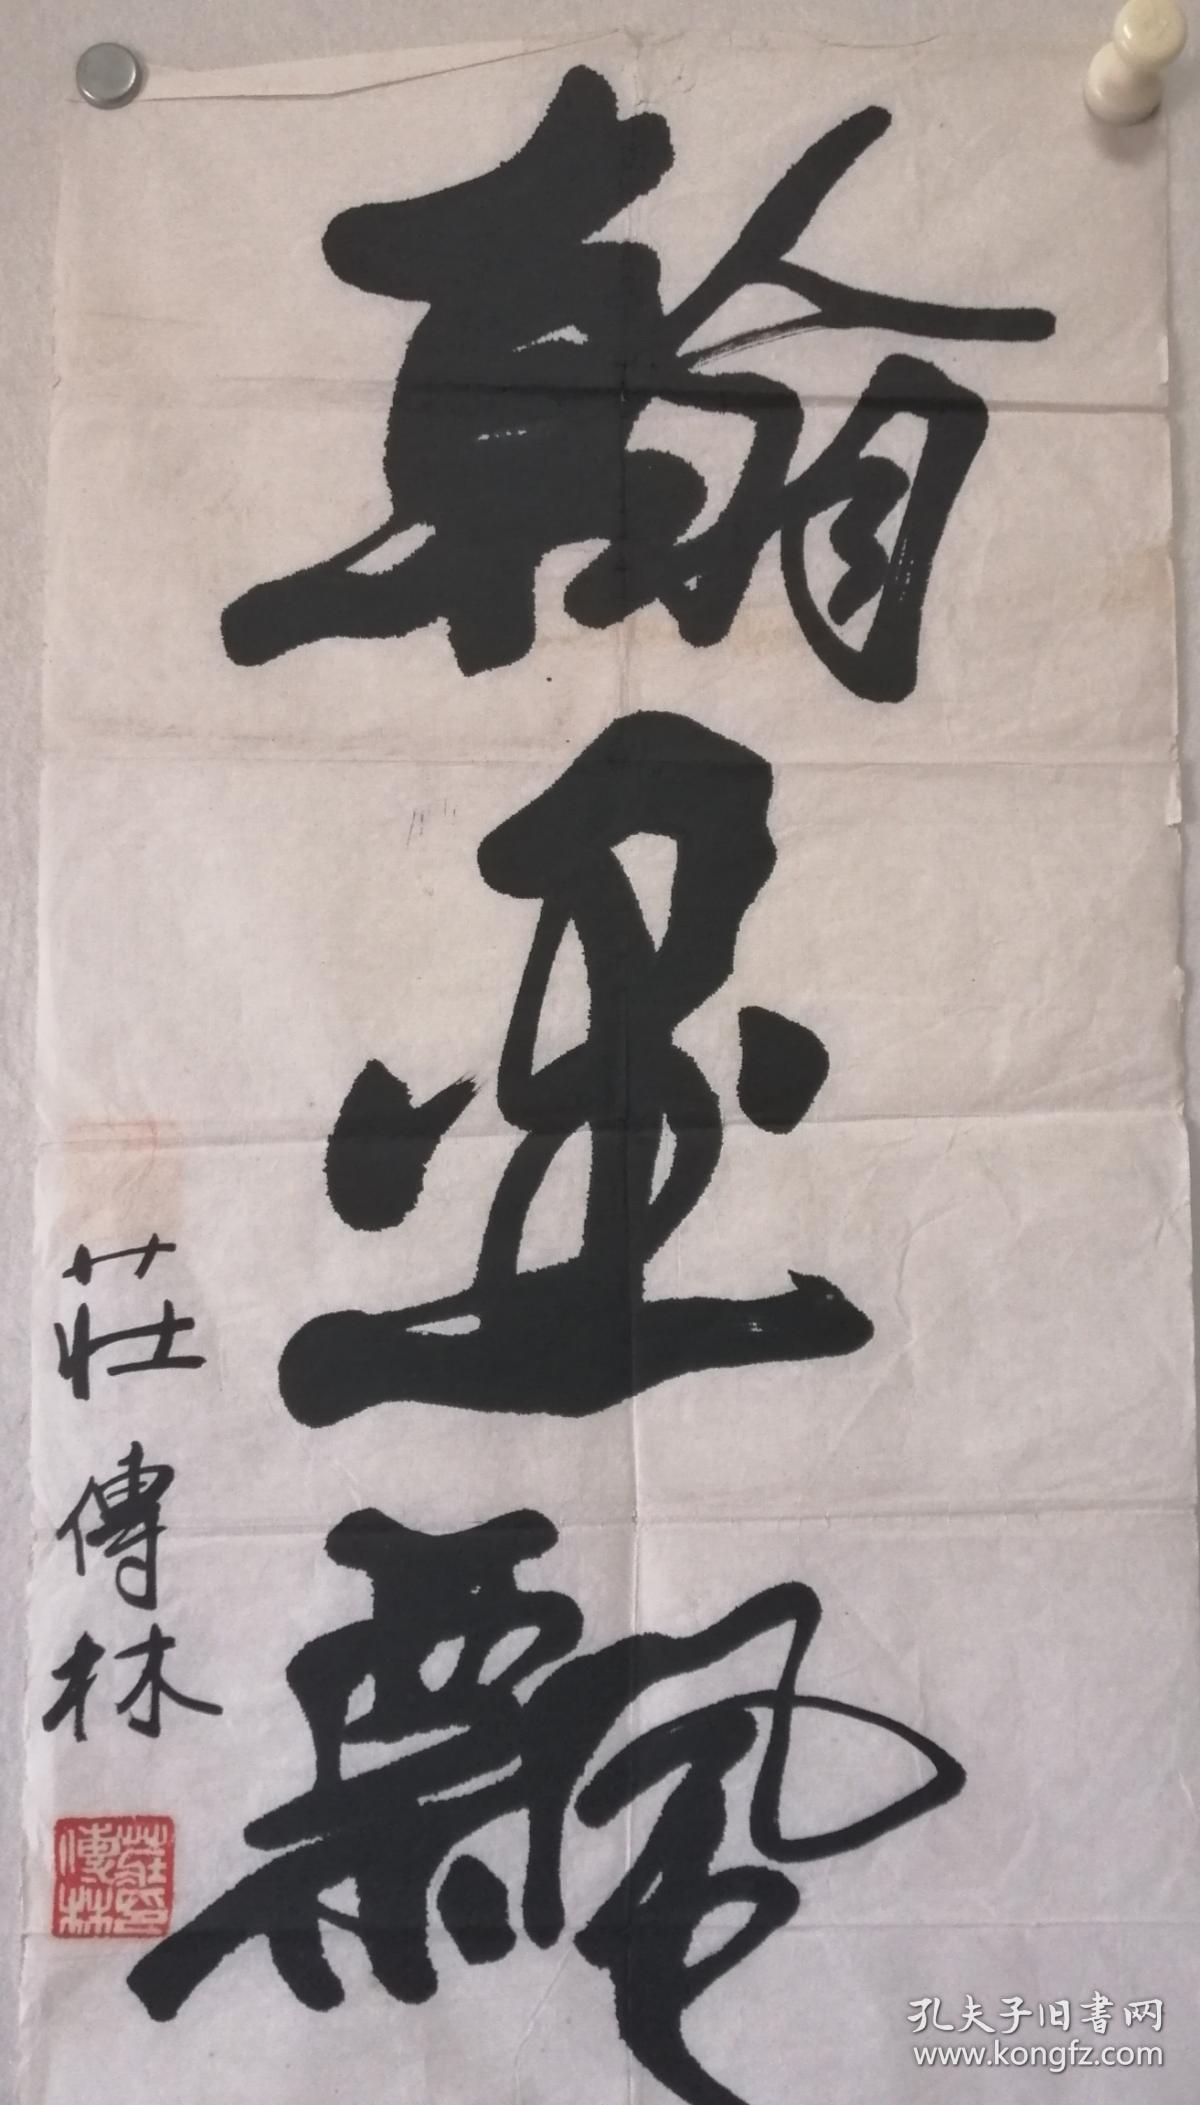 翰墨飘
莊傳林
莊傳林印
孔夫子旧書网
www.kongfz.com